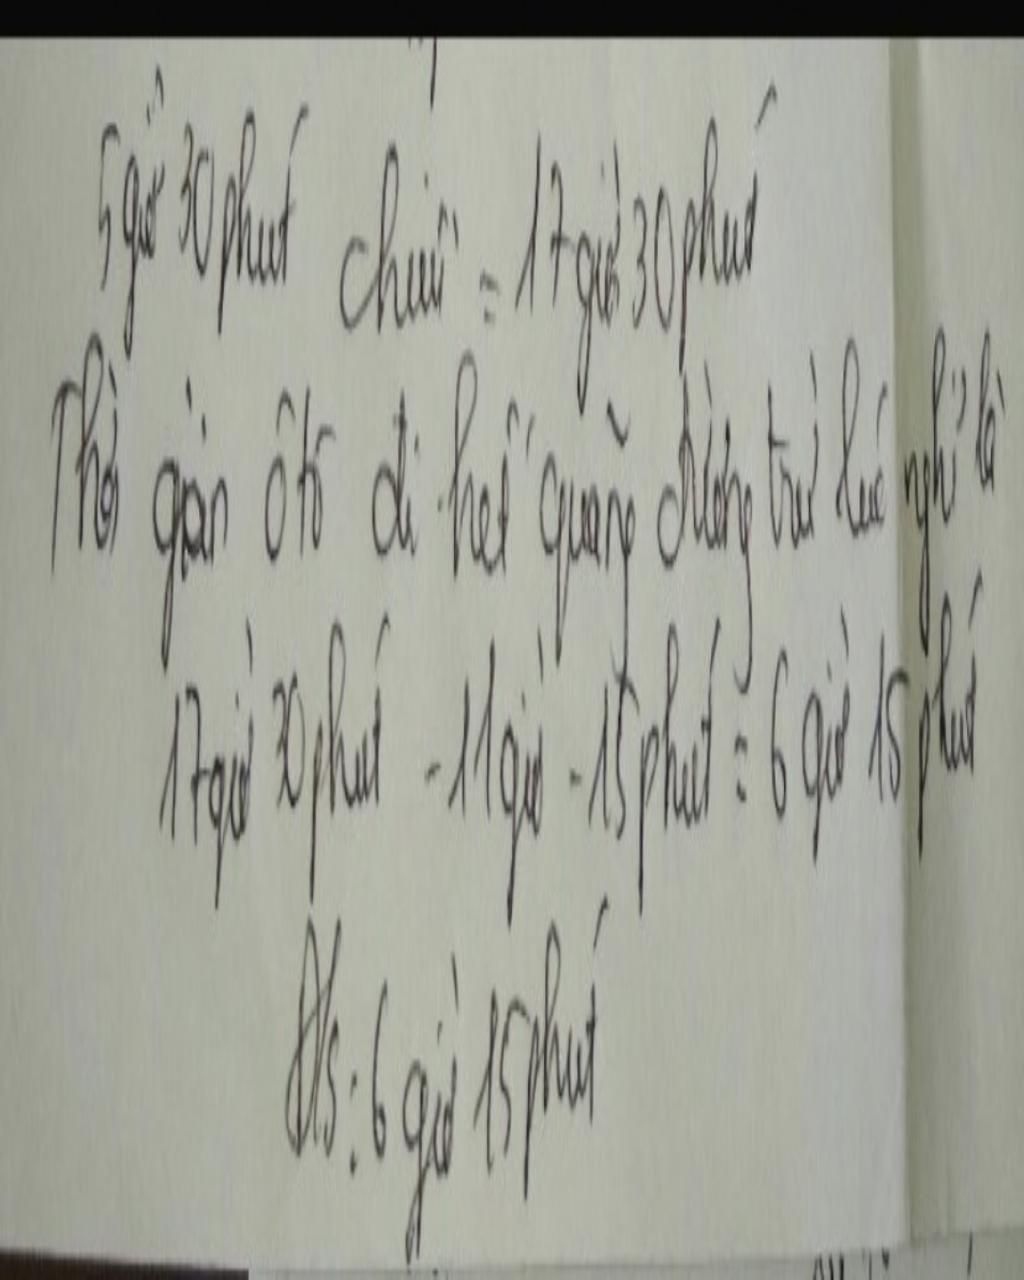 5 giờ 30 phút chiều = 17 giờ 30 phút
Thời gian ô tô đi hết quãng đường trừ lúc nghỉ là
17 giờ 30 phút - 11 giờ - 15 phút = 6 giờ 15 phút
Đ/s: 6 giờ 15 phút